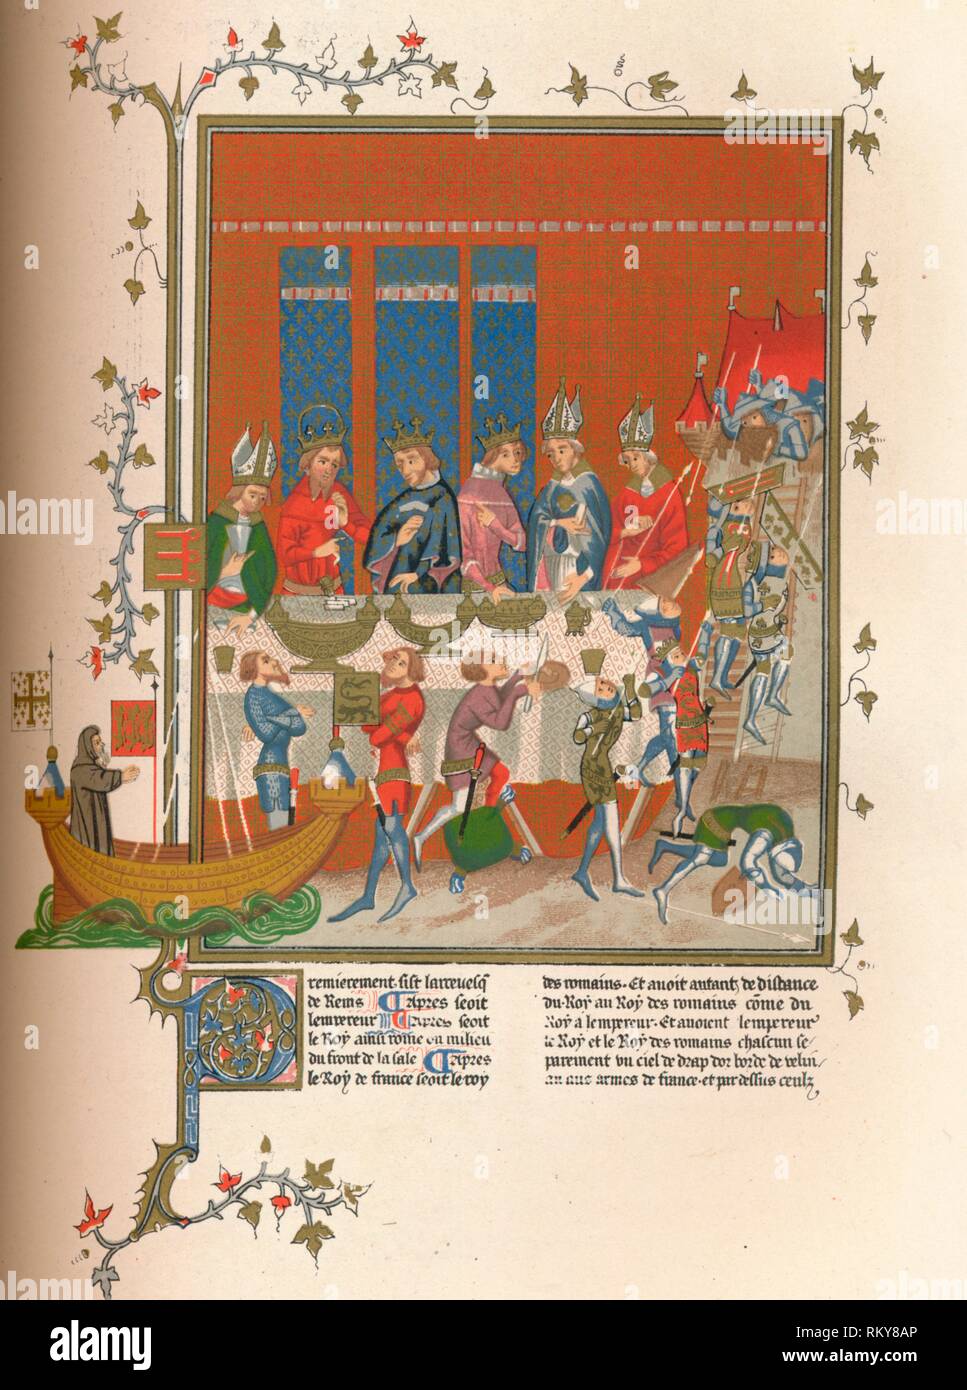 Premièrement sist larcevesq
de Reins Après seoit
lempereur Après seoit
le Roy ainsi come ou milieu
du front de la sale Après
le Roy de france seoit le roy
des romains. Et avoit autantz de distance
du Roy au Roy des romains cõme du
Roy a lempereur. Et avoient lempereur
le Roy et le Roy des romains chascun se
parement vn ciel de drap dor borde de velin
armes de france. et par dessus ceulz
alamy
Image ID: RKY8AP
www.alamy.com